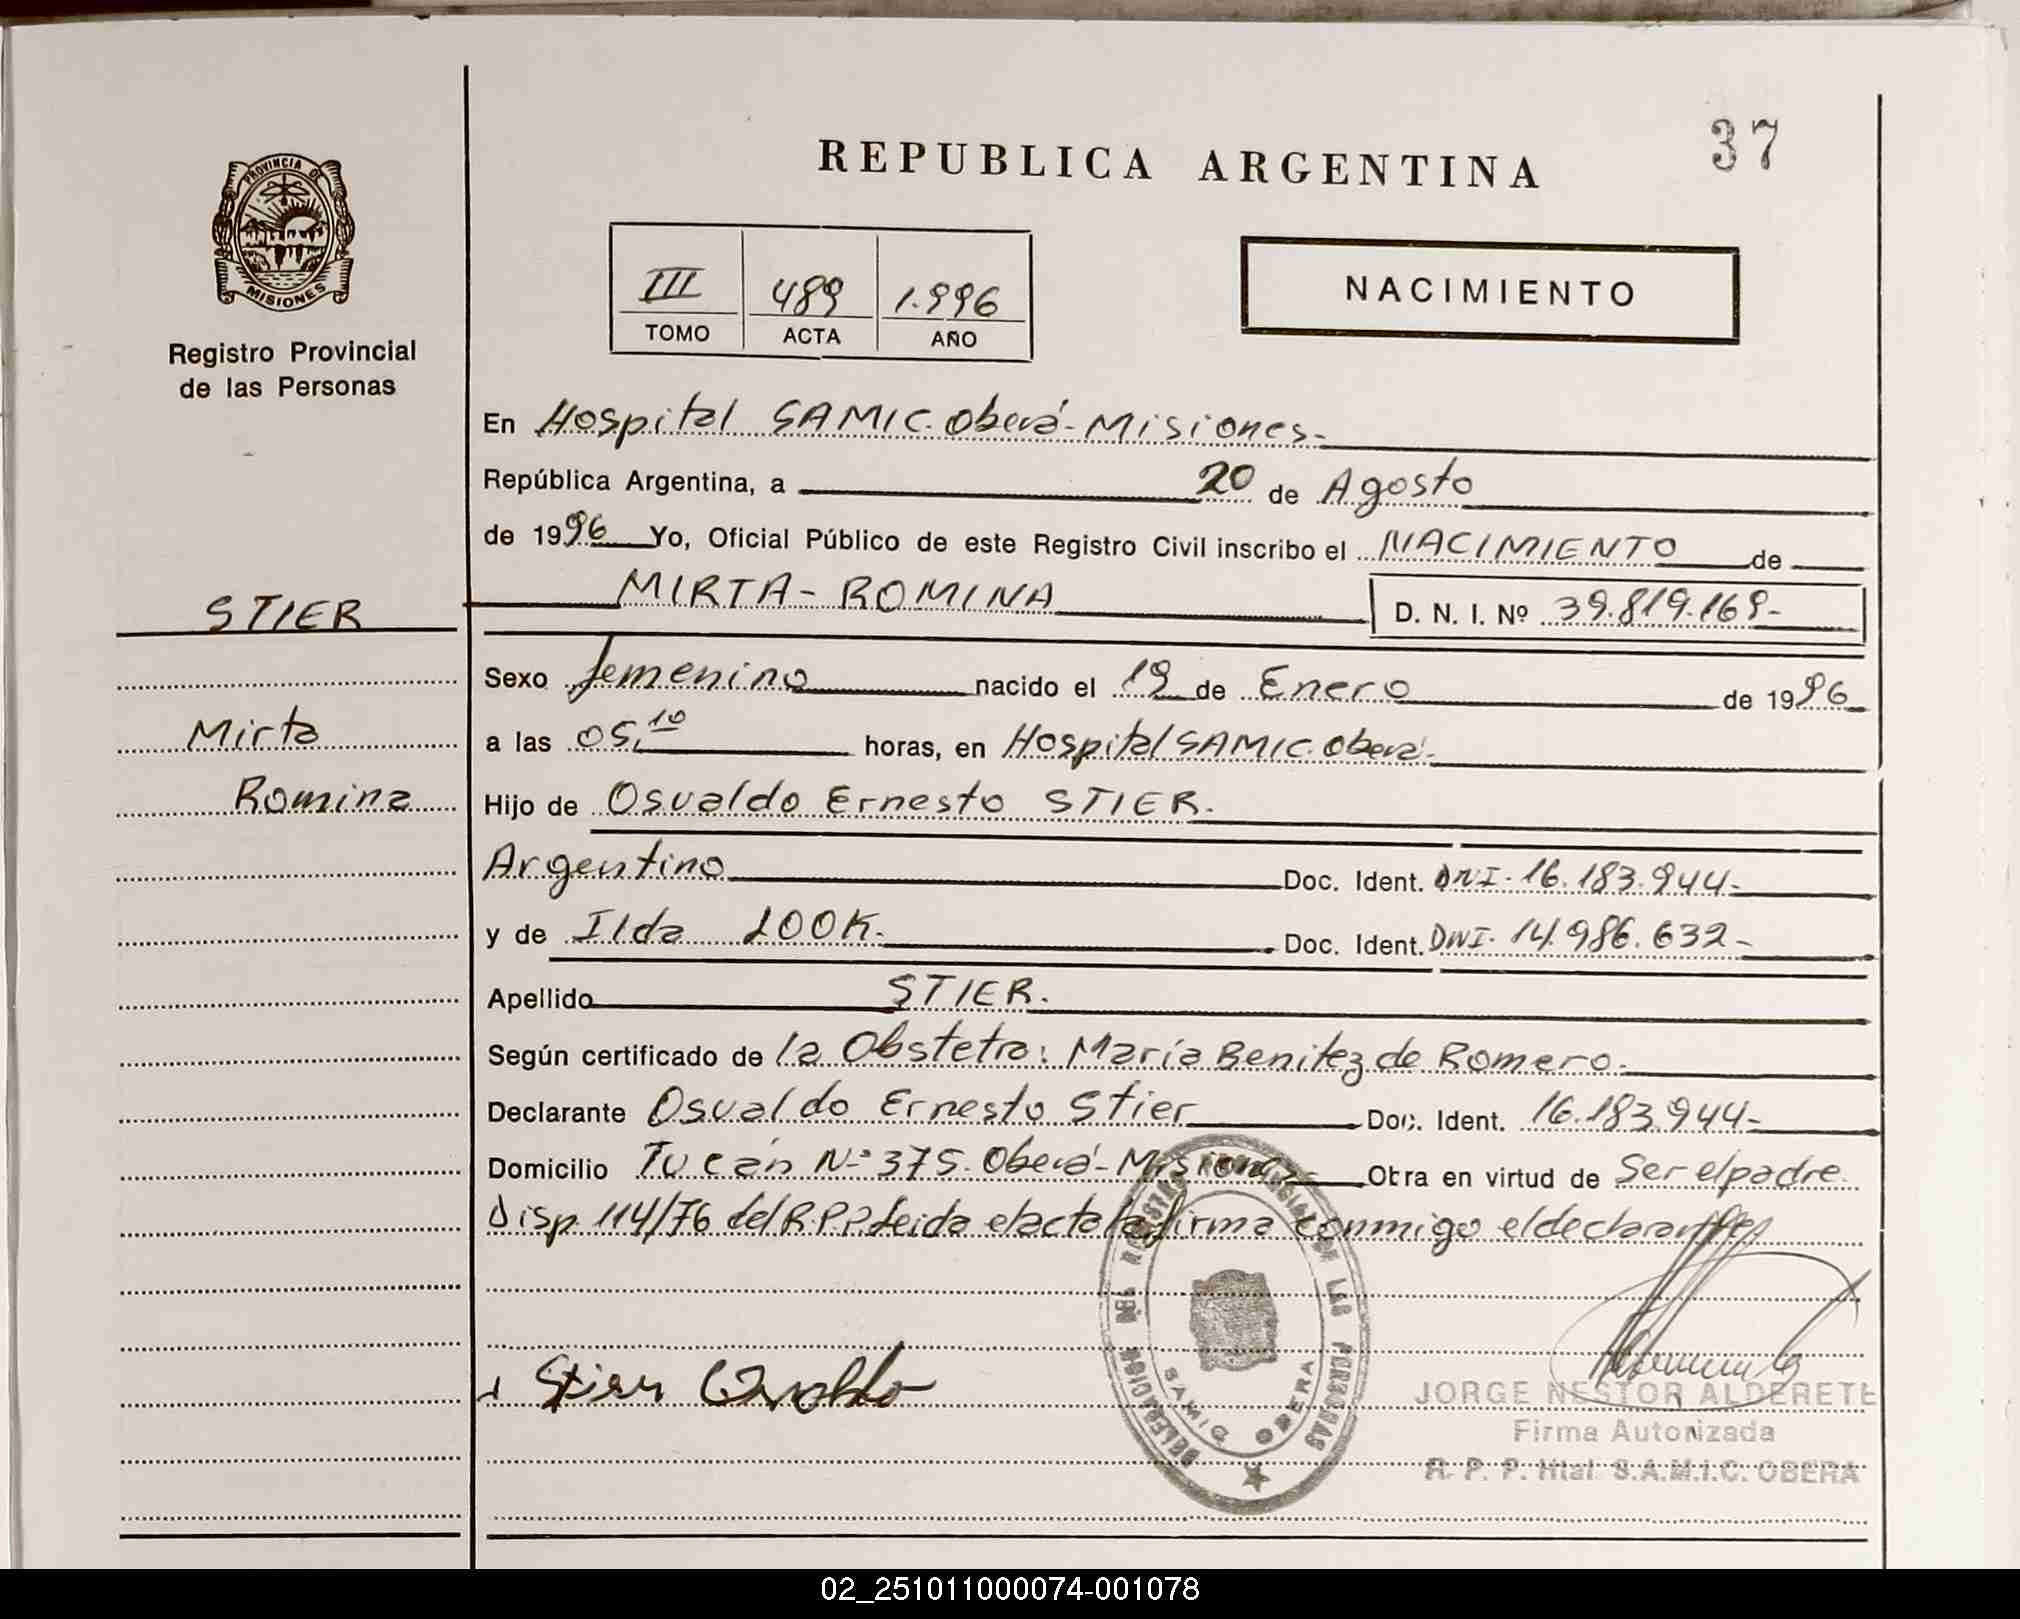 37
REPUBLICA ARGENTINA
PROVINCIA DE
MISIONES
Registro Provincial
de las Personas
III 489 1.996
TOMO ACTA AÑO
NACIMIENTO
En Hospital SAMIC. Oberá - Misiones.-
República Argentina, a 20 de Agosto
de 1996 Yo, Oficial Público de este Registro Civil inscribo el NACIMIENTO de
MIRTA - ROMINA D. N. I. Nº 39.819.169-
STIER
Mirta
Romina
Sexo femenino nacido el 19 de Enero de 1996
a las 05,10 horas, en Hospital SAMIC. Oberá.
Hijo de Osvaldo Ernesto STIER.
Argentino Doc. Ident. DNI. 16.183.944-
y de Ilda LOOK. Doc. Ident. DNI. 14.986.632-
Apellido STIER.
Según certificado de la Obstetra: María Benitez de Romero.
Declarante Osvaldo Ernesto Stier Doc. Ident. 16.183.944-
Domicilio Tucán Nº 375. Oberá - Misiones Otra en virtud de Ser el padre.
Disp. 114/76 del R.P.P. Leida el acta la firma conmigo el declarante
Stier Osvaldo
DELEGACION DEL REGISTRO PROVINCIAL DE LAS PERSONAS
SAMIC OBERA
JORGE NESTOR ALDERETE
Firma Autorizada
R. P. P. Htal. S.A.M.I.C. OBERA
02_251011000074-001078